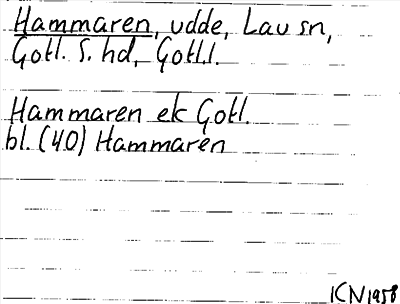 Hammaren, udde, Lau sn,
Gotl. S. hd, Gotl.l.
Hammaren ek Gotl.
bl. (40) Hammaren
ICN 1958